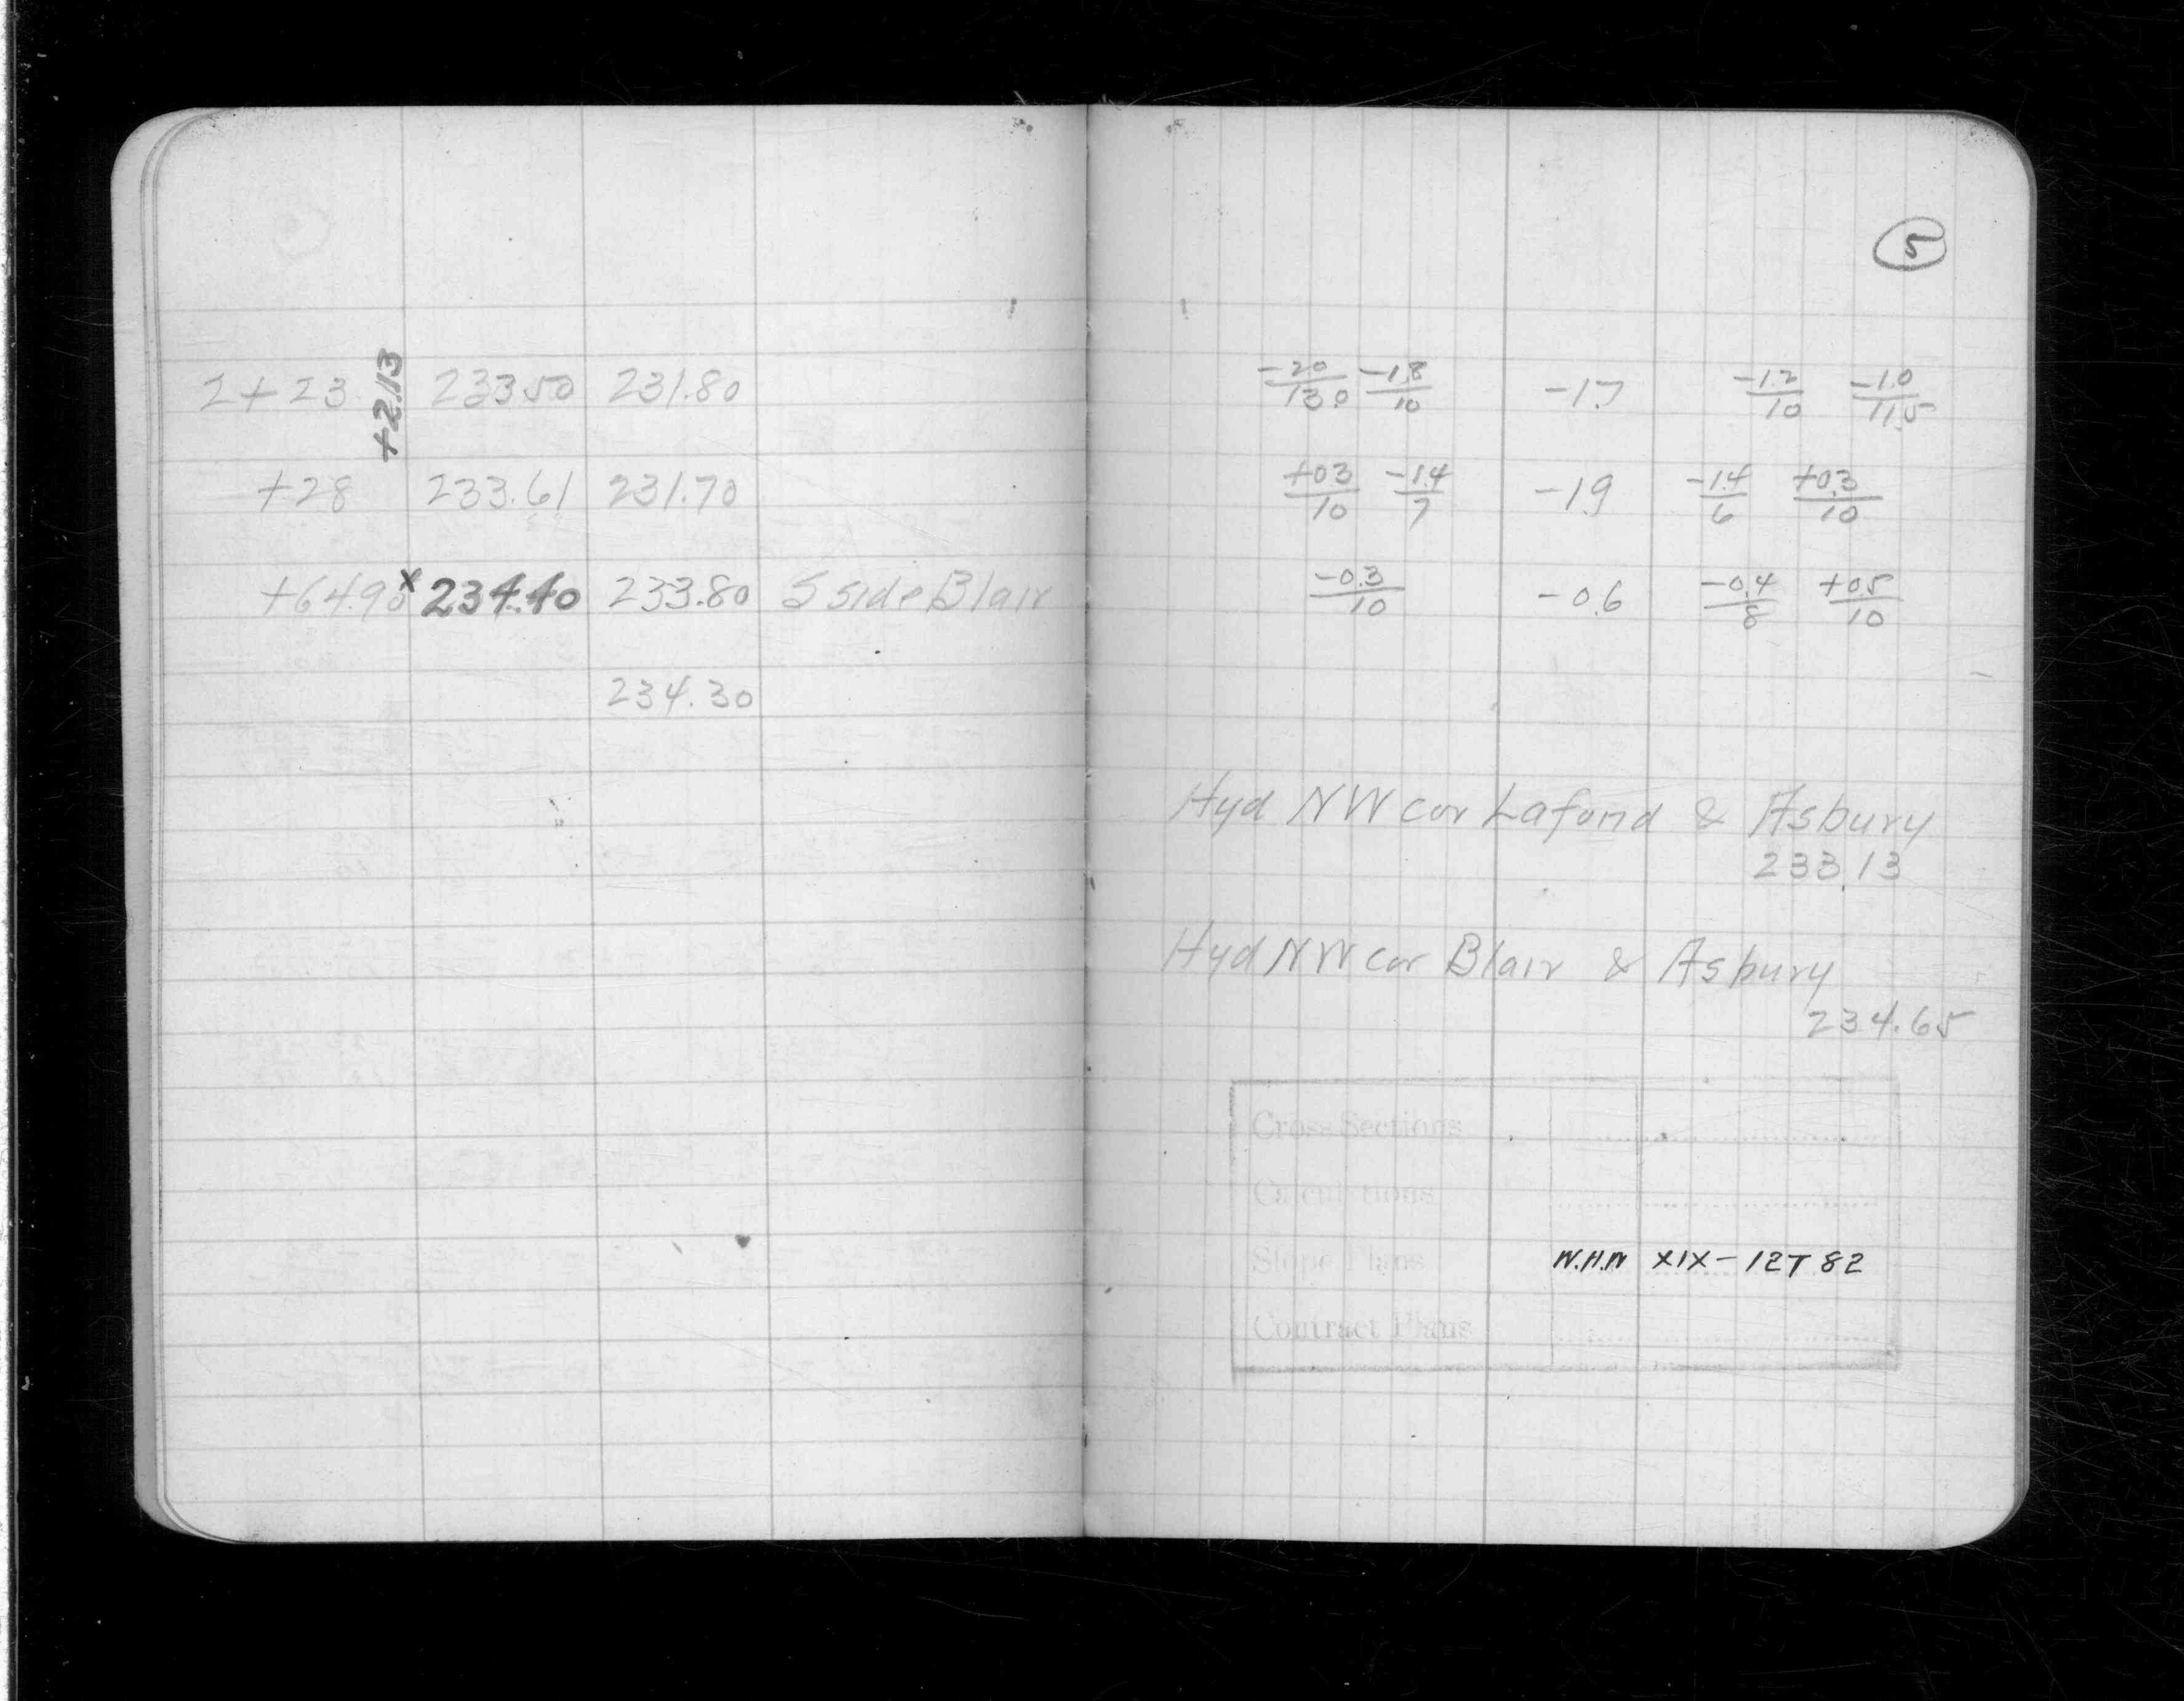 2+23 +2.13 233.50 231.80
+28 233.61 231.70
+64.90 x 234.40 233.80 S side Blair
234.30
5
-2.0/13.0 -1.8/10 -1.7 -1.2/10 -1.0/11.5
+0.3/10 -1.4/7 -1.9 -1.4/6 +0.3/10
-0.3/10 -0.6 -0.4/8 +0.5/10
Hyd NW cor Lafond & Asbury
233.13
Hyd NW cor Blair & Asbury
234.65
Cross Sections
Calculations
Slope Plans W.H.W XIX-12T 82
Contract Plans